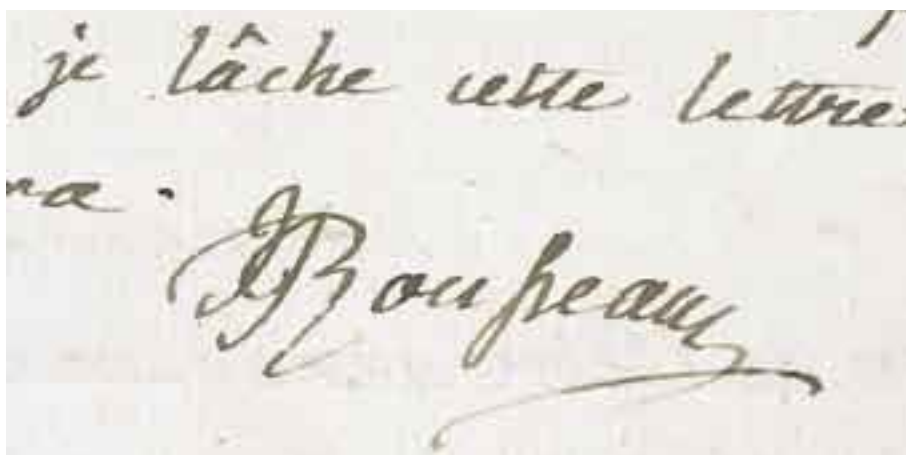 je lâche cette lettre
ra.
JJRousseau